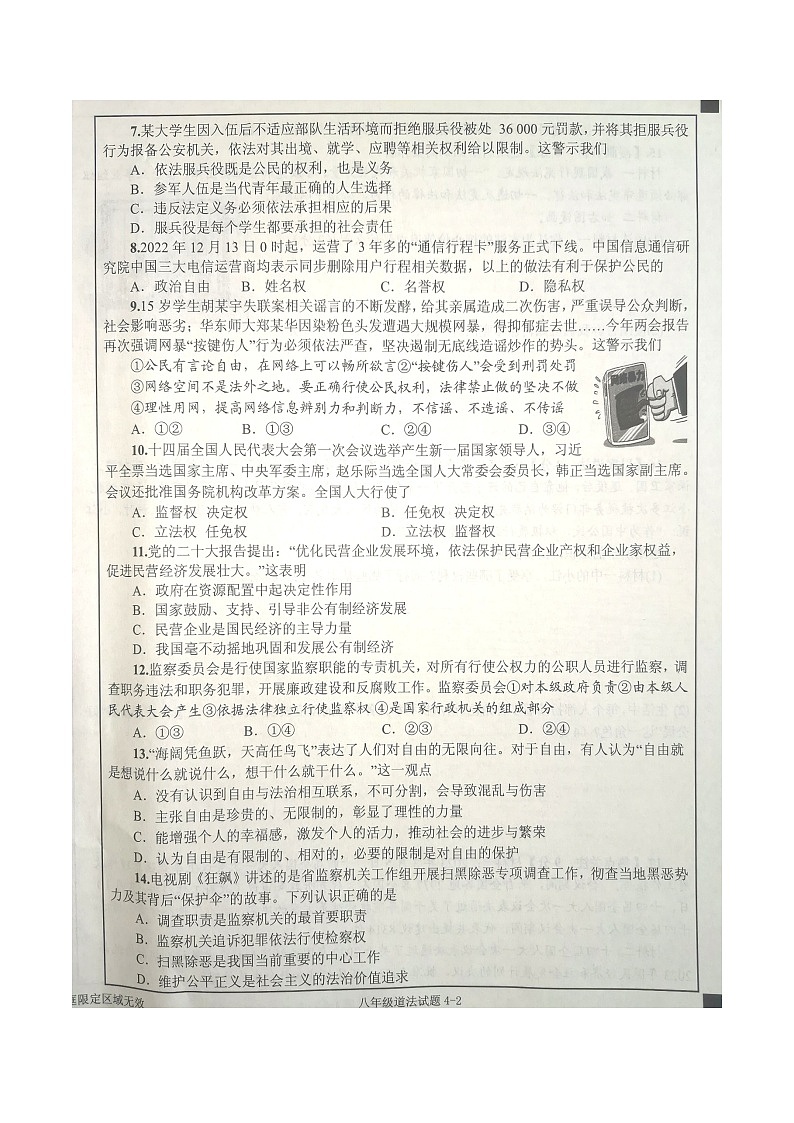 7.某大学生因入伍后不适应部队生活环境而拒绝服兵役被处 36 000 元罚款,并将其拒服兵役
行为报备公安机关，依法对其出境、就学、应聘等相关权利给以限制。这警示我们
A．依法服兵役既是公民的权利，也是义务
B．参军人伍是当代青年最正确的人生选择
C．违反法定义务必须依法承担相应的后果
D．服兵役是每个学生都要承担的社会责任
8.2022 年 12 月 13 日 0 时起，运营了 3 年多的“通信行程卡”服务正式下线。中国信息通信研
究院中国三大电信运营商均表示同步删除用户行程相关数据，以上的做法有利于保护公民的
A．政治自由 B．姓名权 C．名誉权 D．隐私权
9.15 岁学生胡某宇失联案相关谣言的不断发酵,给其亲属造成二次伤害，严重误导公众判断,
社会影响恶劣；华东师大郑某华因染粉色头发遭遇大规模网暴，得抑郁症去世……今年两会报告
再次强调网暴“按键伤人”行为必须依法严查，坚决遏制无底线造谣炒作的势头。这警示我们
①公民有言论自由，在网络上可以畅所欲言②“按键伤人”会受到刑罚处罚
③网络空间不是法外之地。要正确行使公民权利，法律禁止做的坚决不做
④理性用网，提高网络信息辨别力和判断力，不信谣、不造谣、不传谣
A．①② B．①③ C．②④ D．③④
网络暴力
10.十四届全国人民代表大会第一次会议选举产生新一届国家领导人，习近
平全票当选国家主席、中央军委主席，赵乐际当选全国人大常委会委员长，韩正当选国家副主席。
会议还批准国务院机构改革方案。全国人大行使了
A．监督权 决定权 B．任免权 决定权
C．立法权 任免权 D．立法权 监督权
11.党的二十大报告提出：“优化民营企业发展环境，依法保护民营企业产权和企业家权益，
促进民营经济发展壮大。”这表明
A．政府在资源配置中起决定性作用
B．国家鼓励、支持、引导非公有制经济发展
C．民营企业是国民经济的主导力量
D．我国毫不动摇地巩固和发展公有制经济
12.监察委员会是行使国家监察职能的专责机关，对所有行使公权力的公职人员进行监察，调
查职务违法和职务犯罪，开展廉政建设和反腐败工作。监察委员会①对本级政府负责②由本级人
民代表大会产生③依据法律独立行使监察权 ④是国家行政机关的组成部分
A．①③ B．①④ C．②③ D．②④
13.“海阔凭鱼跃，天高任鸟飞”表达了人们对自由的无限向往。对于自由，有人认为“自由就
是想说什么就说什么，想干什么就干什么。”这一观点
A．没有认识到自由与法治相互联系，不可分割，会导致混乱与伤害
B．主张自由是珍贵的、无限制的，彰显了理性的力量
C．能增强个人的幸福感，激发个人的活力，推动社会的进步与繁荣
D．认为自由是有限制的、相对的，必要的限制是对自由的保护
14.电视剧《狂飙》讲述的是省监察机关工作组开展扫黑除恶专项调查工作，彻查当地黑恶势
力及其背后“保护伞”的故事。下列认识正确的是
A．调查职责是监察机关的最首要职责
B．监察机关追诉犯罪依法行使检察权
C．扫黑除恶是我国当前重要的中心工作
D．维护公平正义是社会主义的法治价值追求
框限定区域无效 八年级道法试题 4-2